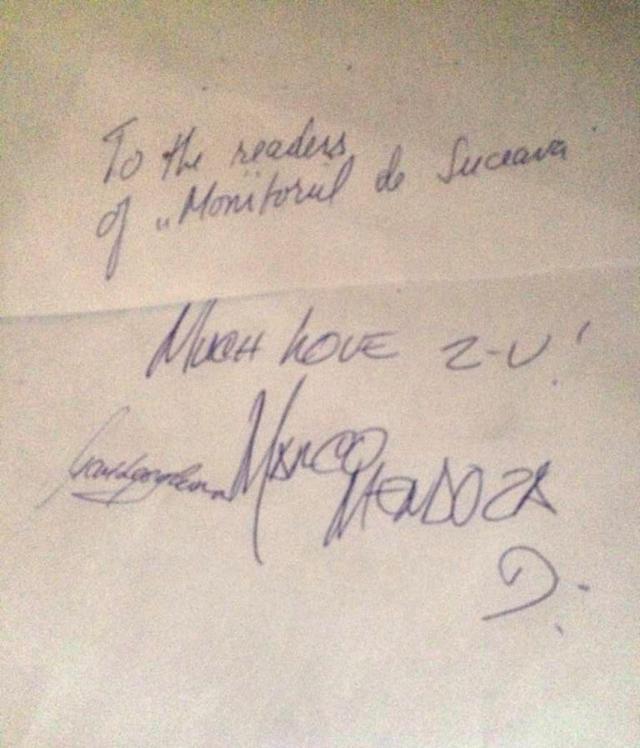 To the readers
of „Monitorul de Suceava
MUCH LOVE 2-U!
MARCO
MENDOZA